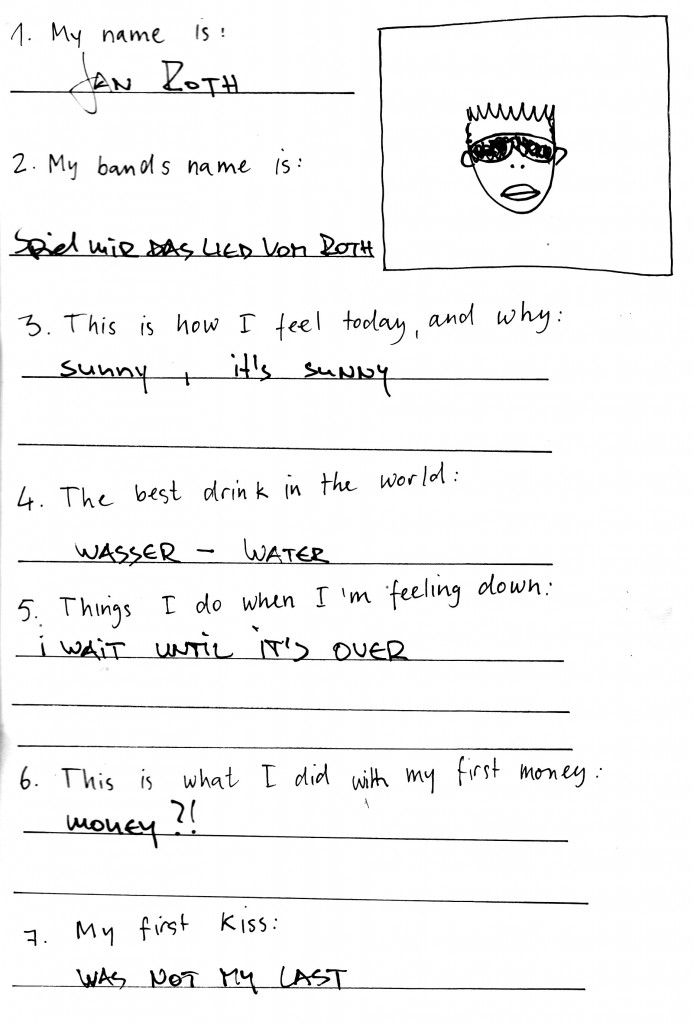 1. My name is:
JAN ROTH
2. My bands name is:
Spiel MIR DAS LIED VOM ROTH
3. This is how I feel today, and why:
sunny, it's suNNy
4. The best drink in the world:
WASSER – WATER
5. Things I do when I'm feeling down:
i WAiT UNTiL iT'S OVER
6. This is what I did with my first money:
money?!
7. My first kiss:
WAS NOT MY LAST